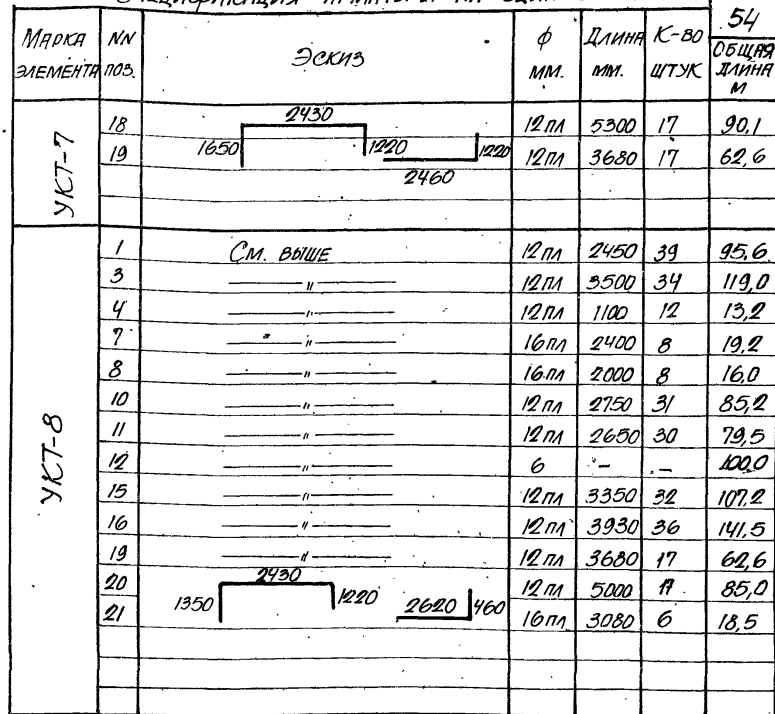 54
МАРКА ЭЛЕМЕНТА NN ПОЗ. ЭСКИЗ ф ММ. ДЛИНА ММ. К-ВО ШТУК ОБЩАЯ ДЛИНА М
УКТ-7
18 1650 2430 1220 12ПЛ 5300 17 90,1
19 2460 1220 12ПЛ 3680 17 62,6
УКТ-8
1 СМ. ВЫШЕ 12ПЛ 2450 39 95,6
3 —〃— 12ПЛ 3500 34 119,0
4 —〃— 12ПЛ 1100 12 13,2
7 —〃— 16ПЛ 2400 8 19,2
8 —〃— 16ПЛ 2000 8 16,0
10 —〃— 12ПЛ 2750 31 85,2
11 —〃— 12ПЛ 2650 30 79,5
12 —〃— 6 - - 100,0
15 —〃— 12ПЛ 3350 32 107,2
16 —〃— 12ПЛ 3930 36 141,5
19 —〃— 12ПЛ 3680 17 62,6
20 1350 2430 1220 12ПЛ 5000 17 85,0
21 2620 460 16ПЛ 3080 6 18,5